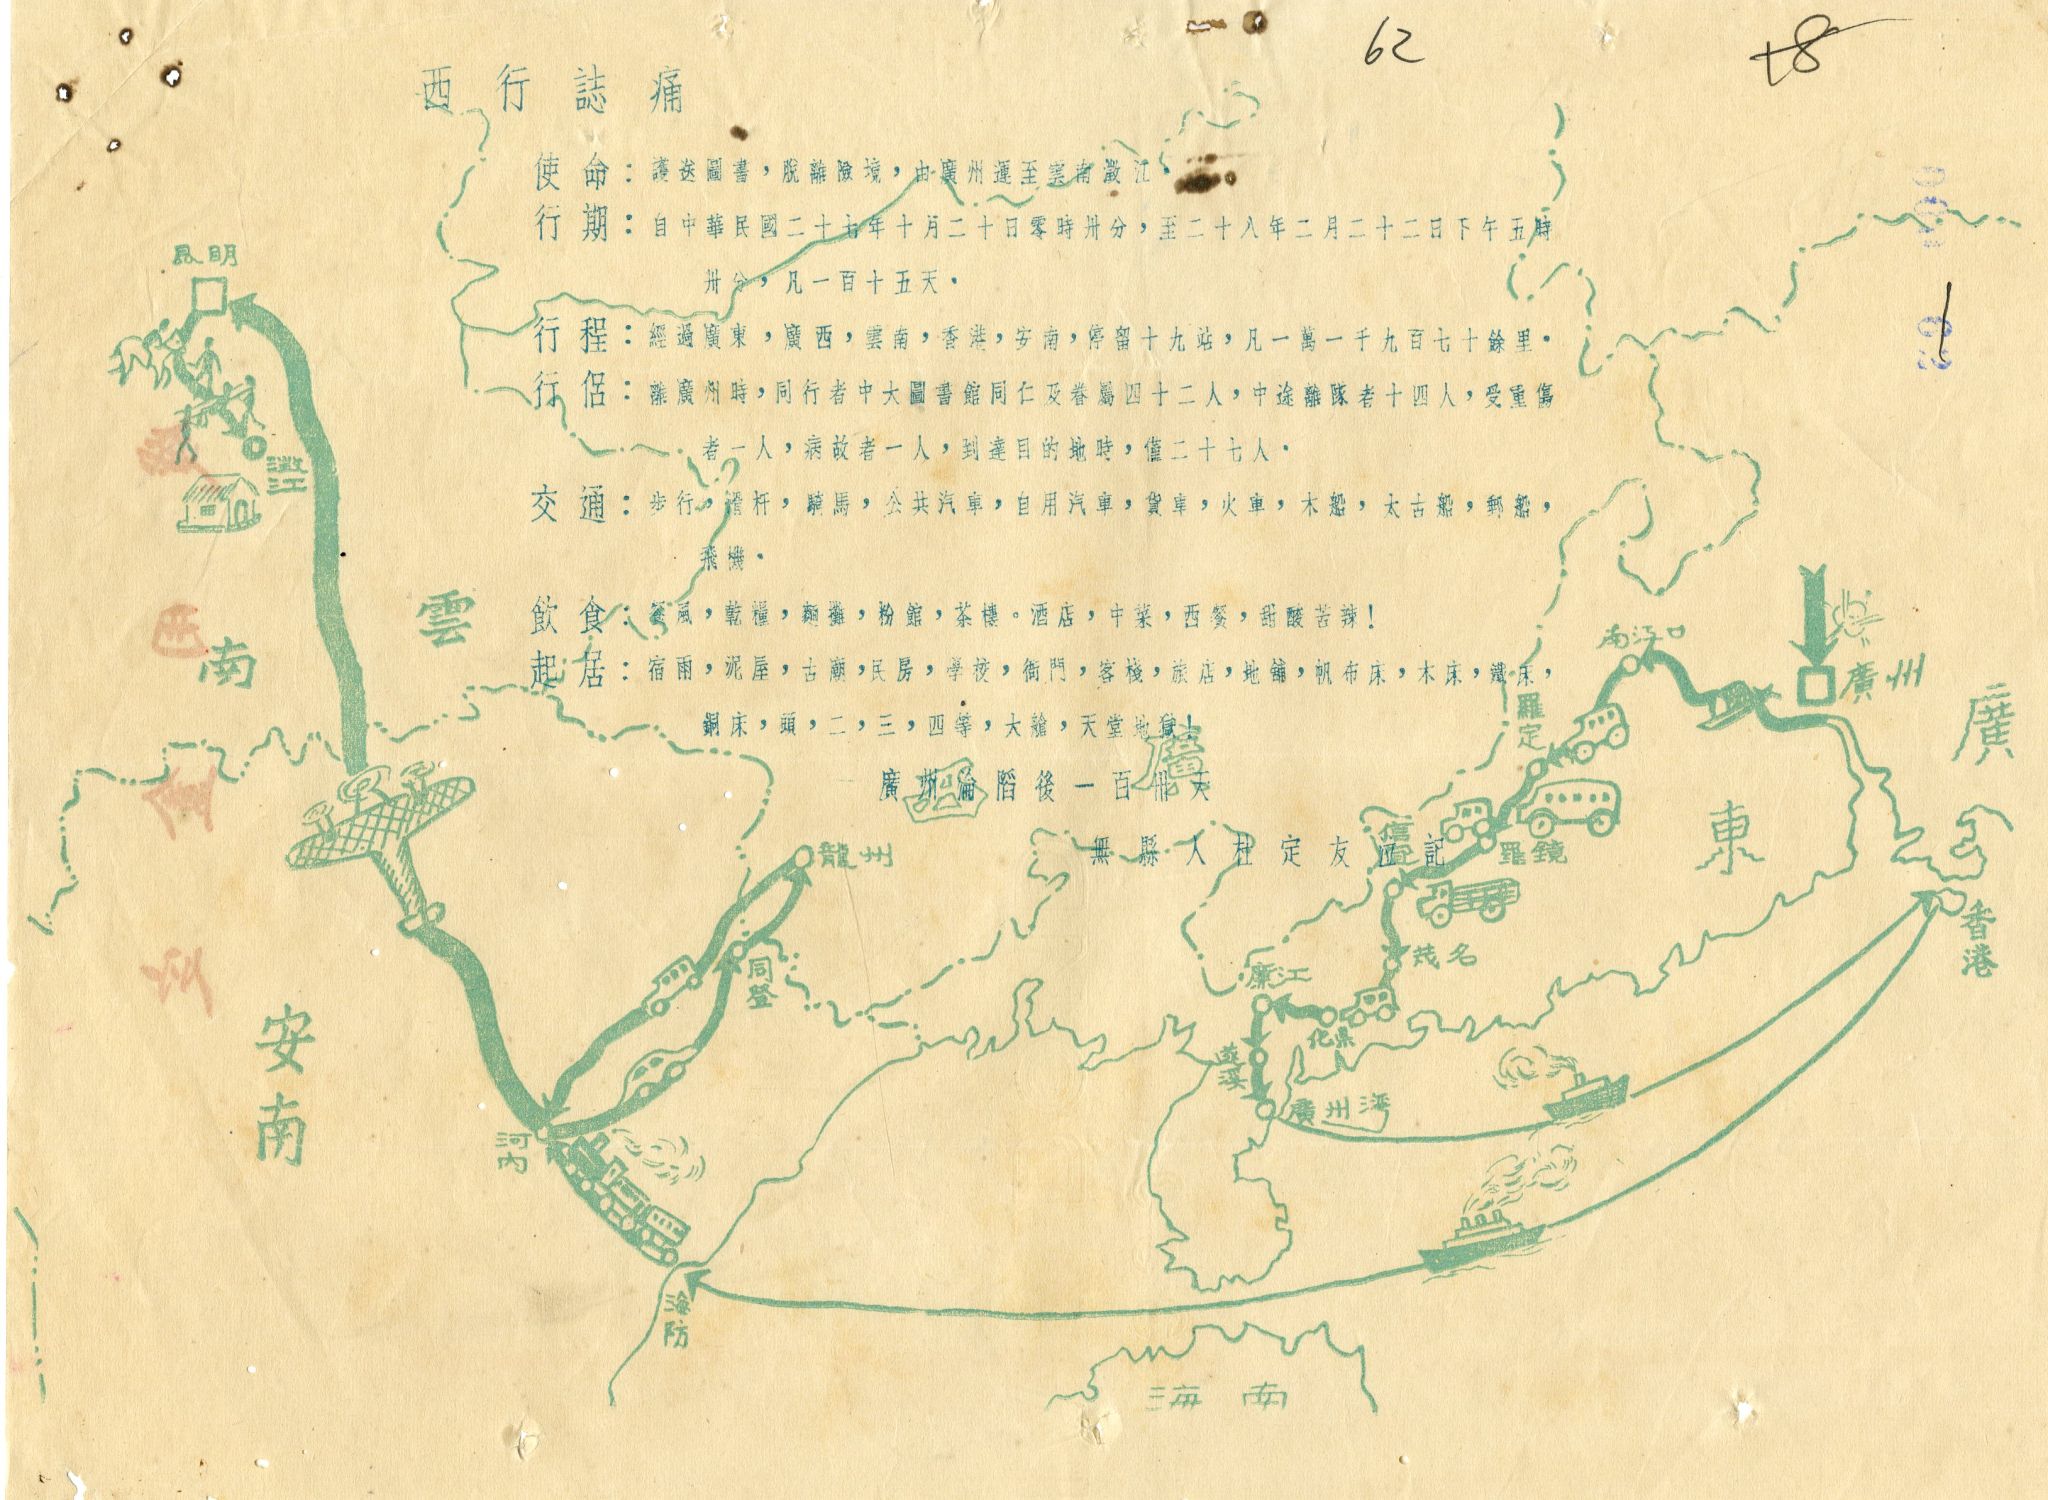 62
18
西行誌痛
使命：護送圖書，脫離險境，由廣州運至雲南澂江。
行期：自中華民國二十七年十月二十日零時卅分，至二十八年二月二十二日下午五時
卅分，凡一百十五天．
行程：經過廣東，廣西，雲南，香港，安南，停留十九站，凡一萬一千九百七十餘里．
行侶：離廣州時，同行者中大圖書館同仁及眷屬四十二人，中途離隊者十四人，受重傷
者一人，病故者一人，到達目的地時，僅二十七人．
交通：步行，滑杆，騎馬，公共汽車，自用汽車，貨車，火車，木船，太古船，郵船，
飛機．
飲食：餐風，乾糧，麵攤，粉館，茶樓。酒店，中菜，西餐，甜酸苦辣！
起居：宿雨，泥屋，古廟，民房，學校，衙門，客棧，旅店，地舖，帆布床，木床，鐵床，
銅床，頭，二，三，四等，大艙，天堂地獄！
廣州淪陷後一百卅天
無縣人杜定友 記
昆明
澂江
雲
南
安南
廣
廣
東
廣州
南江口
羅定
羅鏡
信宜
茂名
化県
廉江
遂溪
廣州湾
香港
龍州
同登
河內
海防
海南